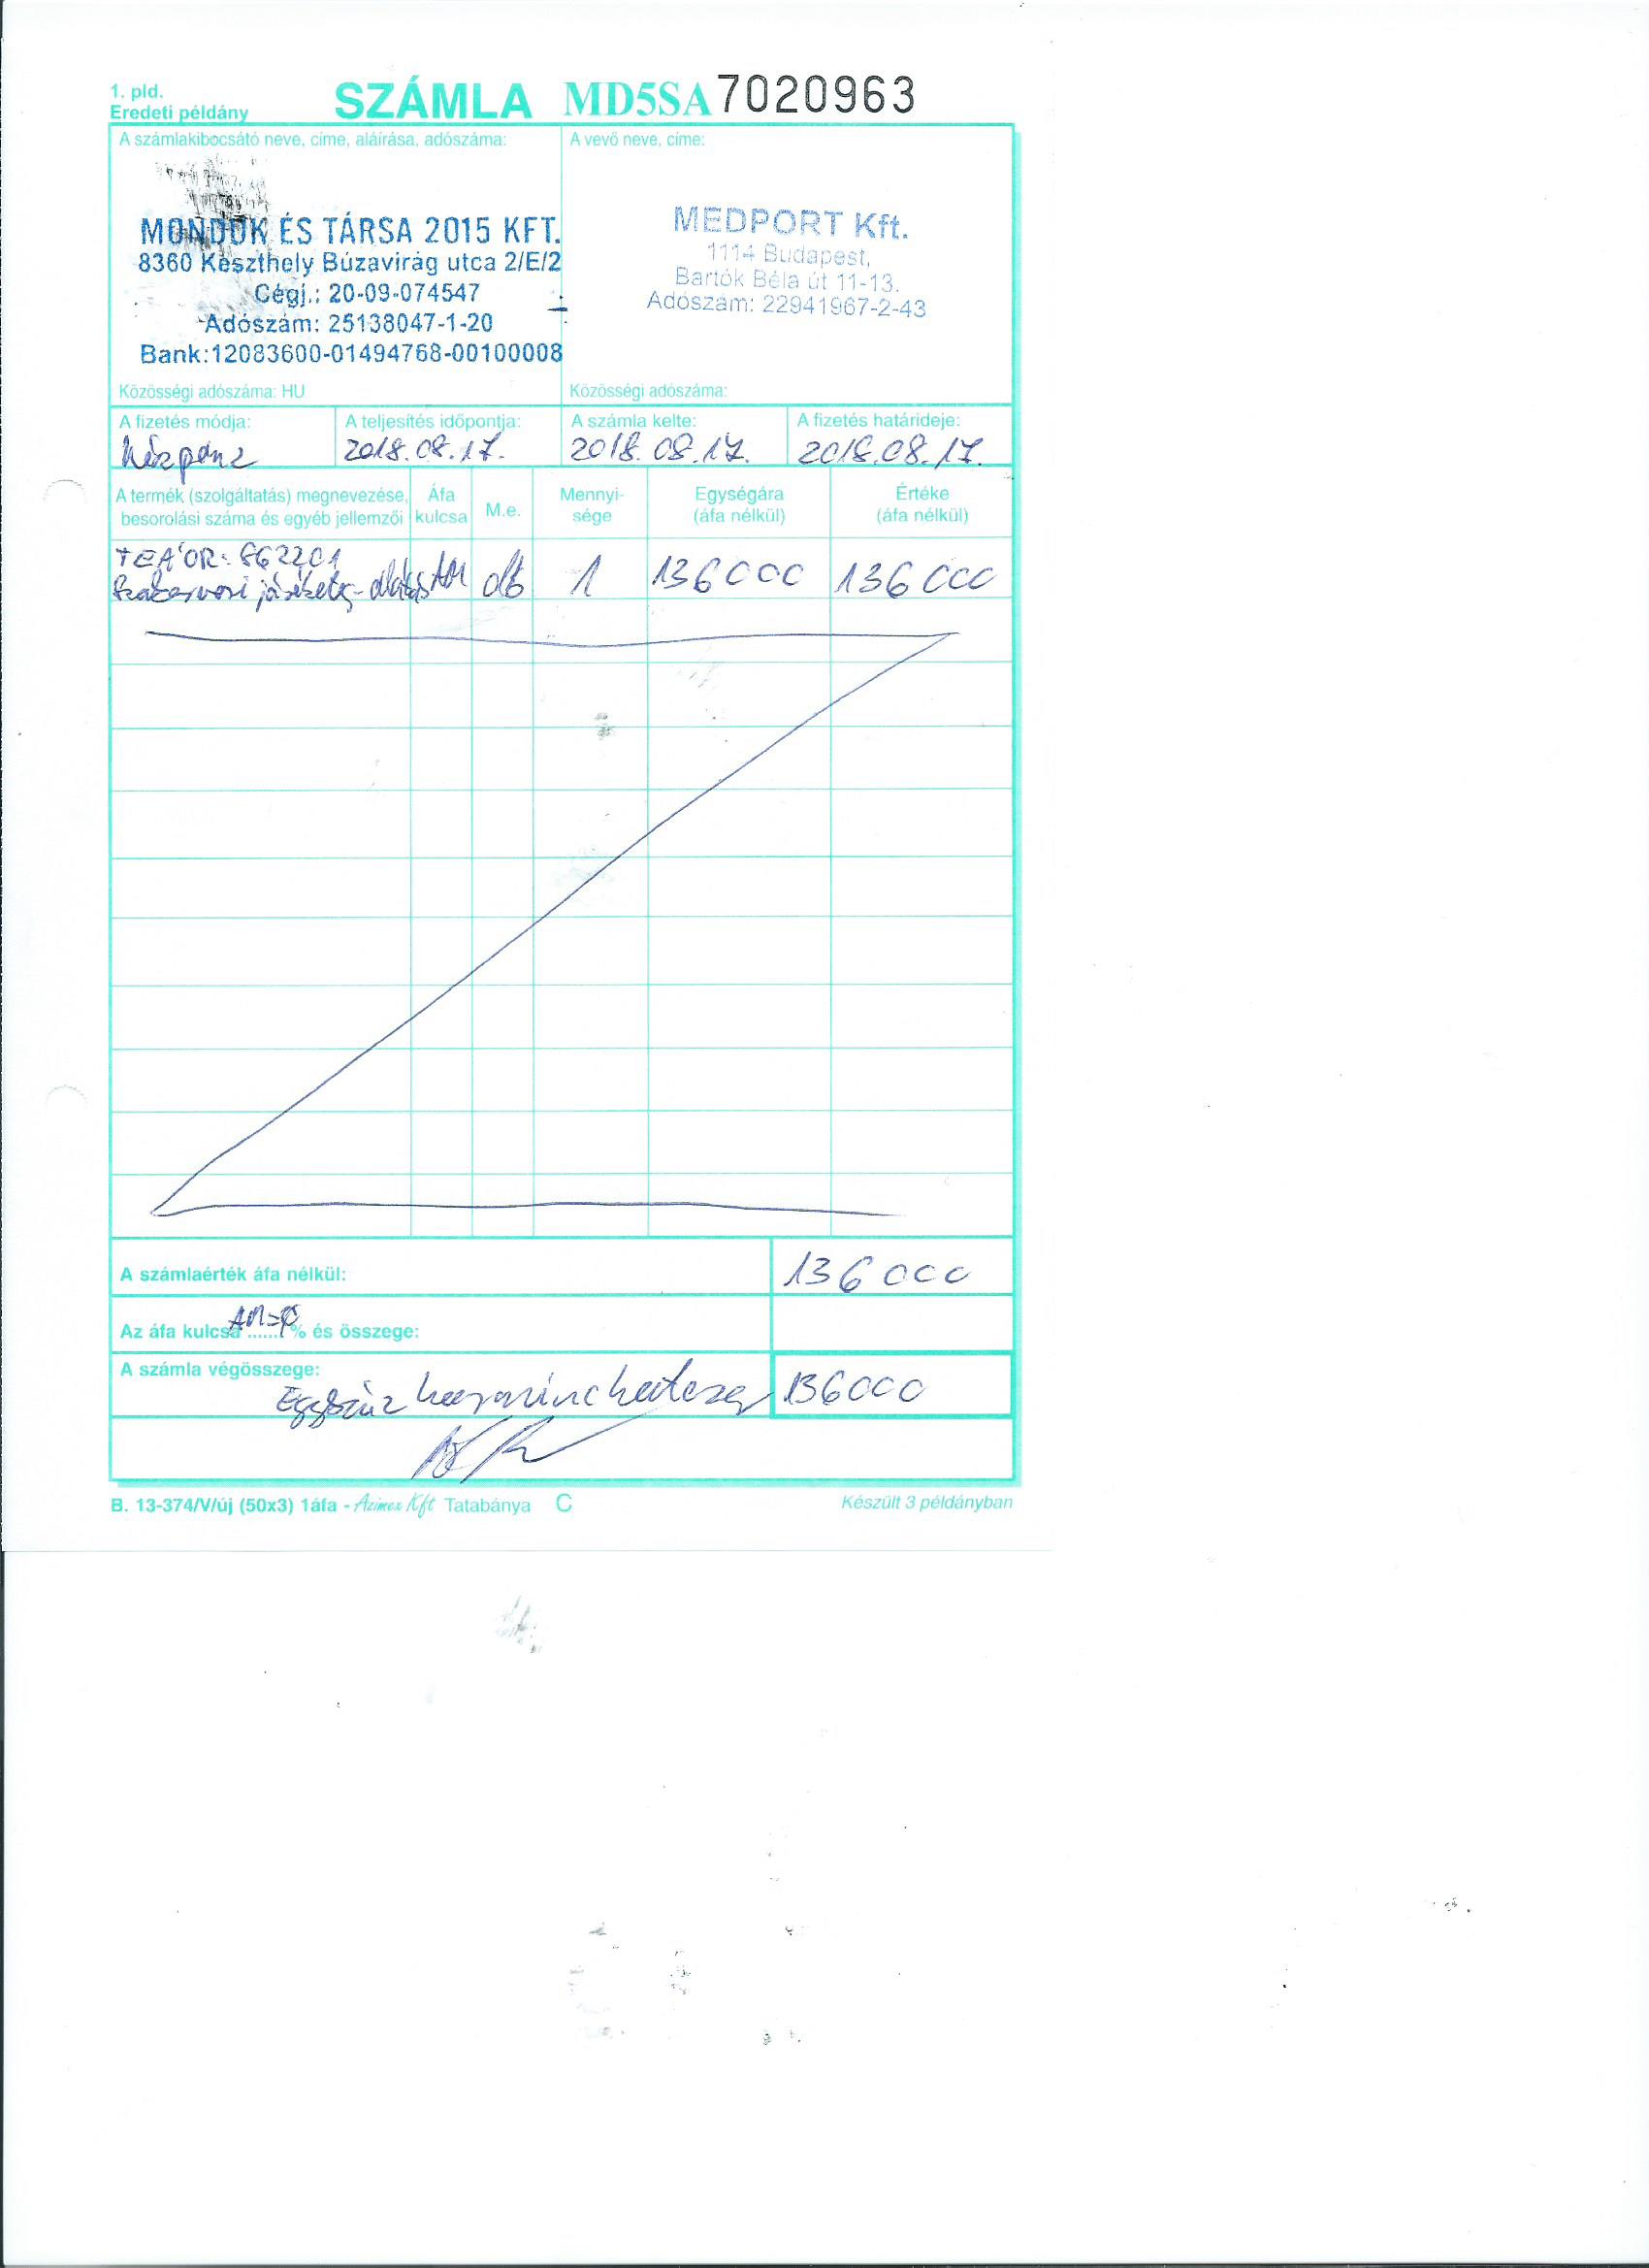 1. pld.
Eredeti példány
SZÁMLA MD5SA 7020963
A számlakibocsátó neve, címe, aláírása, adószáma:
MONDOK ÉS TÁRSA 2015 KFT.
8360 Keszthely Búzavirág utca 2/E/2
Cégj.: 20-09-074547
Adószám: 25138047-1-20
Bank:12083600-01494768-00100008
Közösségi adószáma: HU
A vevő neve, címe:
MEDPORT Kft.
1114 Budapest,
Bartók Béla út 11-13.
Adószám: 22941967-2-43
Közösségi adószáma:
A fizetés módja:
Készpénz
A teljesítés időpontja:
2018.08.17.
A számla kelte:
2018.08.17.
A fizetés határideje:
2018.08.17.
A termék (szolgáltatás) megnevezése, besorolási száma és egyéb jellemzői
Áfa kulcsa
M.e.
Mennyi-
sége
Egységára
(áfa nélkül)
Értéke
(áfa nélkül)
TEÁOR: 862201
Szakorvosi járóbeteg-ellátás AM db 1 136000 136000
A számlaérték áfa nélkül: 136000
Az áfa kulcsa ...... % és összege:
AM
A számla végösszege: 136000
Egyszáz harminchatezer
B. 13-374/V/új (50x3) 1áfa - Azimex Kft Tatabánya C
Készült 3 példányban